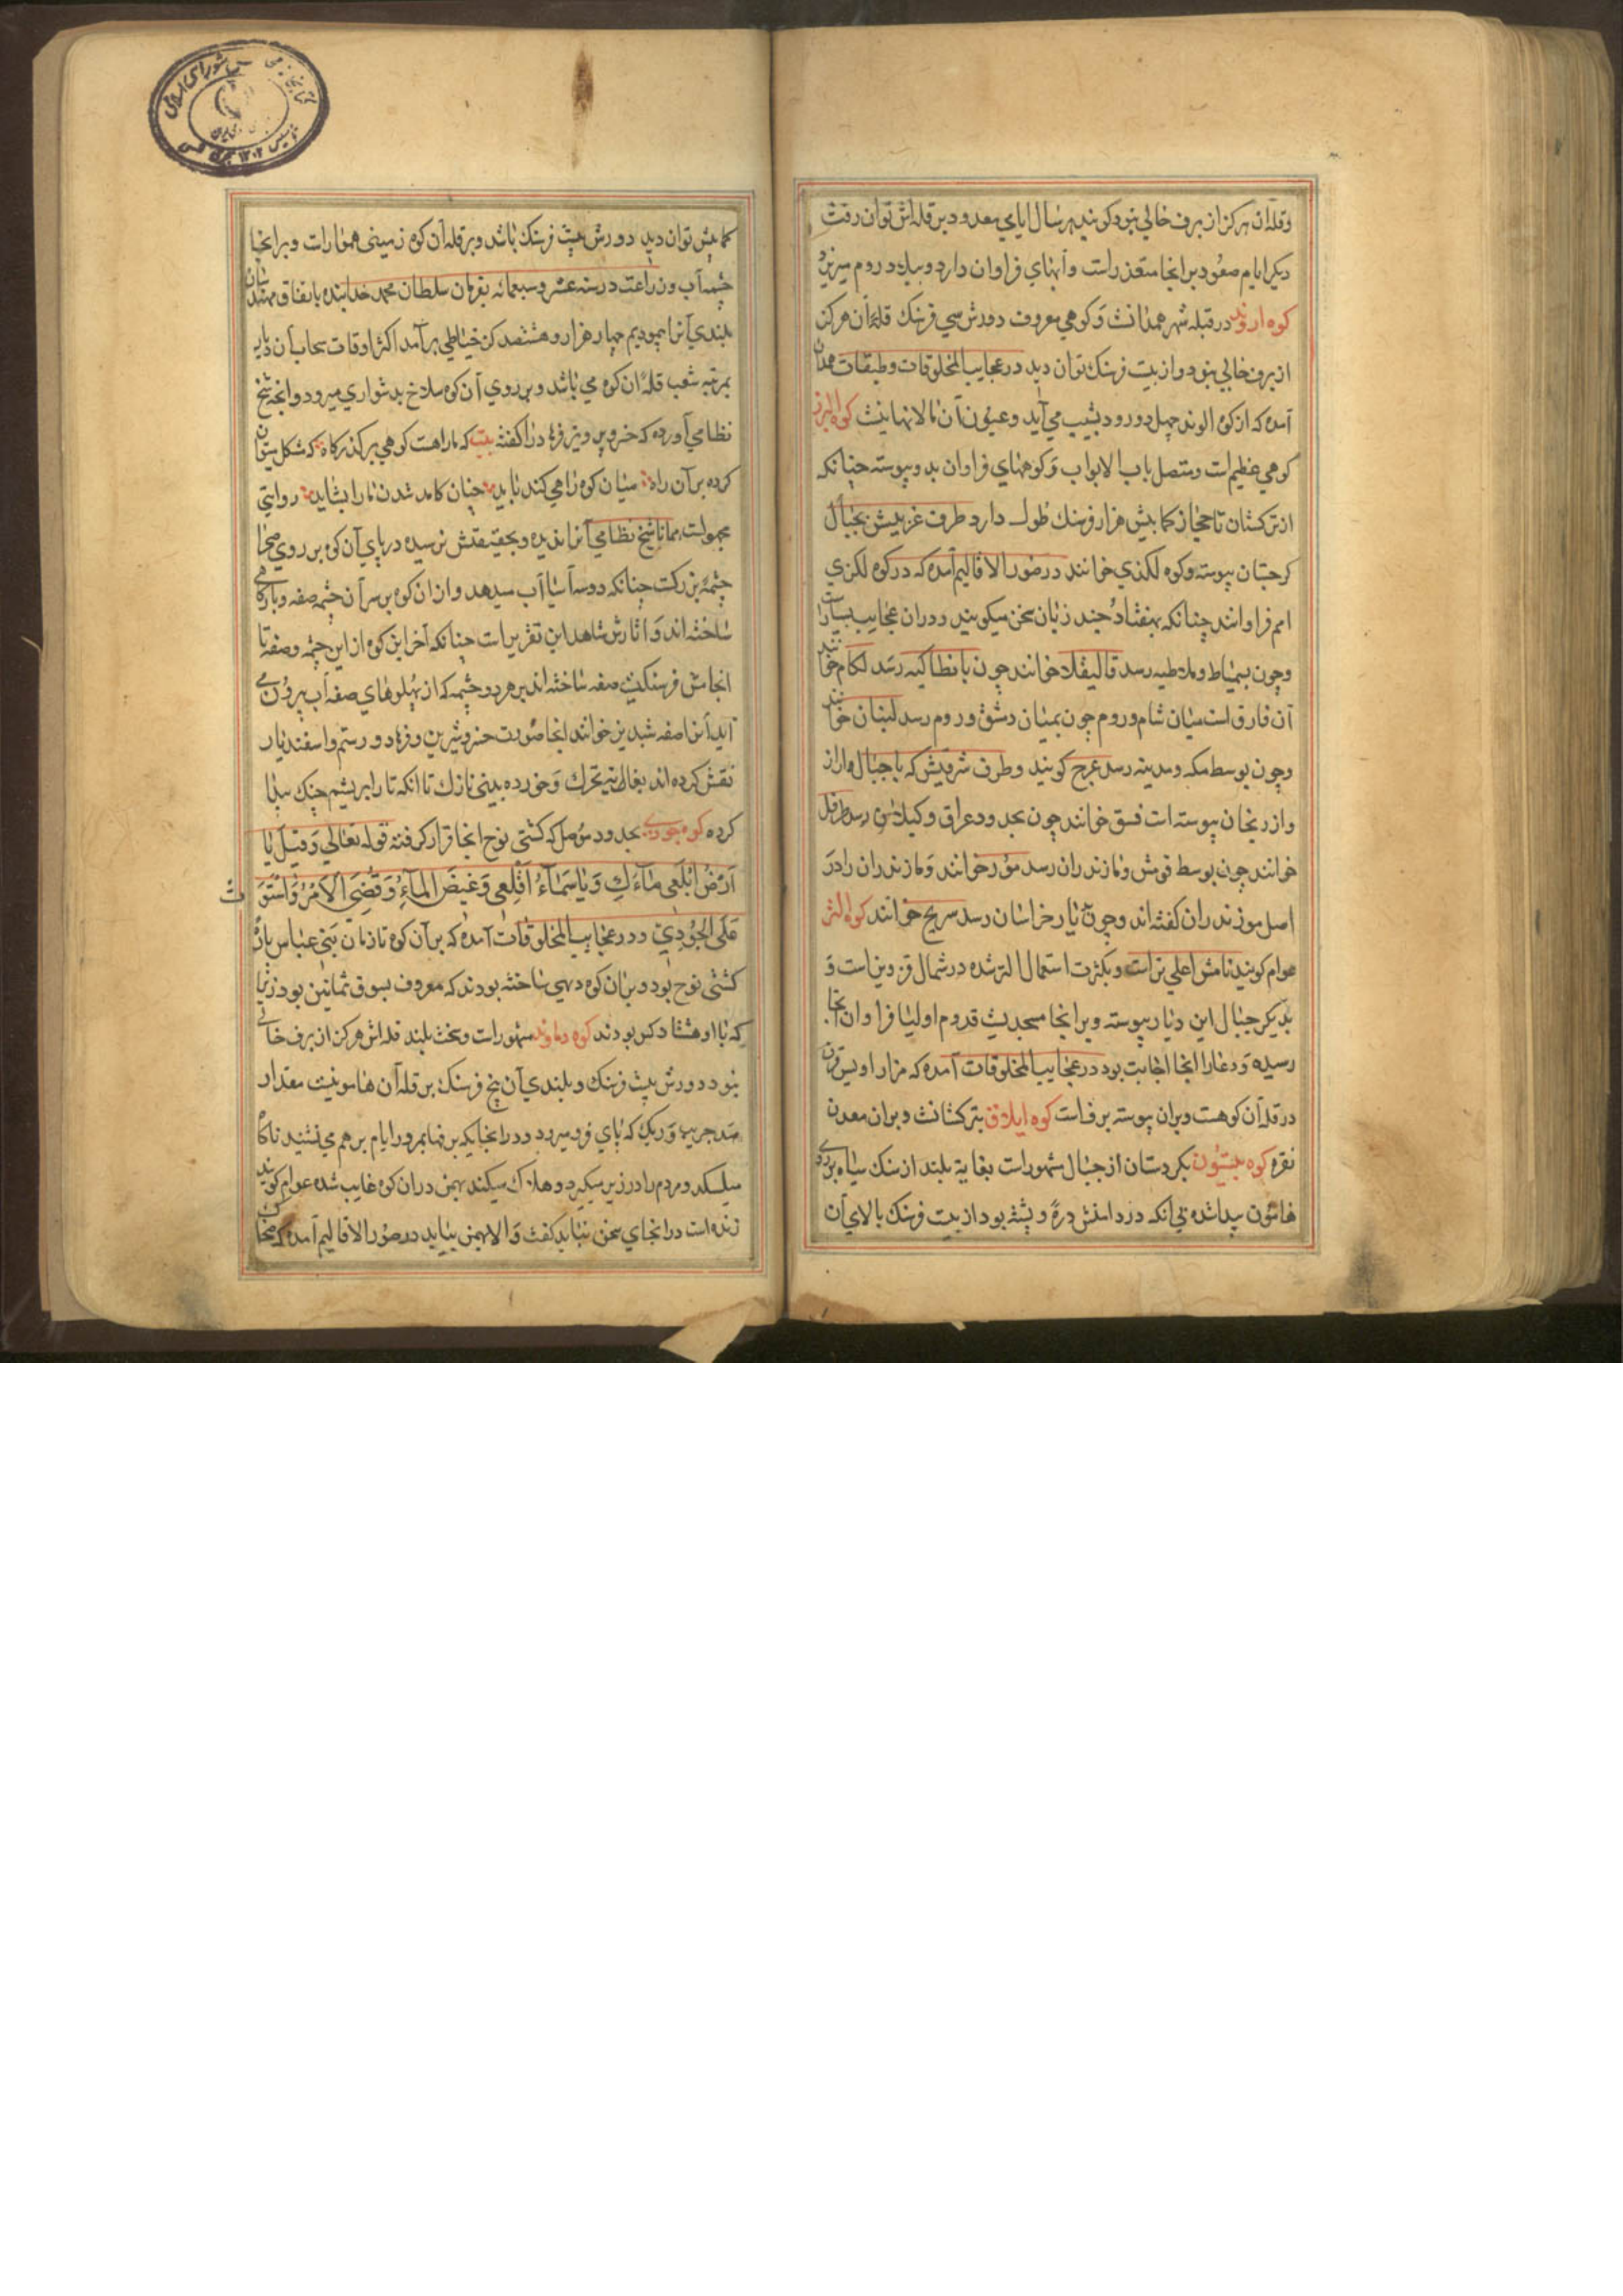 و قله آن هرکز از برف خالي نبود و کویند هر سال ایامي معدود بر قله اش توان رفت
دیکر ایام صعود بر انجا متعذر است و آبهاي فراوان دارد و بیلاد روم میریزد
کوه اروند در قبله شهر همدانست و کوهي معروف دورش سي فرسنک قلهٔ آن هرکز
از برف خالي نبود و از بیست فرسنک توان دید در عجایب المخلوقات و طبقات همدان
آمده که از کوه الوند چهل دو رود بشیب مي آید و عیون آن را لانهایتست کوه البرز
کوهي عظیم است و متصل باب الابواب و کوههاي فراوان بدو پیوسته چنانکه
از ترکستان تا حجاز کما بیش هزار فرسنک طول دارد طرف غربیش بجبال
کرجستان پیوسته و کوه لکزي خوانند در صور الاقالیم آمده که در کوه لکزي
امم فراوانند چنانکه بهفتاد و چند زبان سخن میکویند و در ان عجایب بسیار است
و چون بسمیاط و ملاطیه رسد قالیقلا خوانند چون بانطاکیه رسد لکام خوانند
آن فارق است میان شام و روم چون بمیان دمشق و روم رسد لبنان خوانند
و چون بوسط مکه و مدینه رسد عرج کویند و طرف شرقیش که با جبال اران
و اذربیجان پیوسته است قسق خوانند چون بحدود عراق و کیلان رسد طرقل
خوانند چون بوسط قومش و مازندران رسد موز خوانند و مازندران را در
اصل موزندران کفته اند و چون بدیار خراسان رسد سریج خوانند کوه الثر
عوام کویند نامش اعلي تر است و بکثرت استعمال الثر شده در شمال قزوین است و
بدیکر جبال این دیار پیوسته و بر انجا مسجدیست قدوم اولیا فراوان آنجا
رسیده و دعا را انجا اجابت بود در عجایب المخلوقات آمده که مزار اویس قرن
در قله آن کوهست و بران پیوسته برف است کوه ایلاق بترکستانست و بران معدن
نقره کوه بیستون بکردستان از جبال مشهور است بغایة بلند از سنک سیاه بر روی
هامون پیدا شده بي آنکه در دامنش درهٔ و پشته بود از بیست فرسنک بالاي آن
کما بیش توان دید دورش بیست فرسنک باشد و بر قله آن کوه زمیني هموار است و بر انجا
چشمه آب و زراعت در سنه عشر و سبعمائه بفرمان سلطان محمد خدابنده باتفاق مهندسان
بلندي آنرا پیمودیم چهار هزار و هشتصد کز خیاطي برآمد اکثر اوقات سحاب آن دیار
بمرتبه شعب قلهٔ ان کوه مي باشد و بر روي آن کوه سلاخ بدشواري میرود و انچه شیخ
نظامي آورده که خسرو پرویز فرهاد را کفته بیت که ما راهست کوهي بر کذرکاه که مشکل میتوان
کرده بر آن راه میان کوه راهي کند باید چنان کامد شدن ما را بشاید روایتي
مجهولست همانا شیخ نظامي آنرا ندیده و بحقیقتش نرسیده در پاي آن کوه بر روي صحرا
چشمهٔ بزرکست چنانکه دو سه آسیا آب میدهد و از ان کوه بر سر آن چشمه صفه و بارکاهي
ساخته اند و اثارش شاهد این تقریر است چنانکه آخر این کوه از این چشمه و صفه تا
انجا شش فرسنکیست صفه ساخته اند بر هر دو چشمه که از پهلوهاي صفه آب بیرون مي
آید آنرا صفه شبدیز خوانند انجا صورت خسرو شیرین و فرهاد و رستم و اسفندیار
نقش کرده اند بغایة نیز تحرک و خورده بیني نازک تا انکه تار ابریشم چنک پیدا
کرده کوه جودی بحدود موصل که کشتي نوح انجا قرار کرفته قوله تعالي وَ قیلَ یا
اَرْضُ ابْلَعی مآءَکِ وَ یا سَمآءُ اَقْلِعی وَ غیضَ المآءِ وَ قُضِیَ الاَمْرُ وَ اسْتَوَ
ت
عَلَی الجُودِيّ و در عجایب المخلوقات آمده که بر آن کوه تا زمان بني عباس پاره
کشتي نوح بود و بران کوه دهي ساخته بودند که معروف بسوق ثمانین بود زیرا
که با او هشتاد کس بودند کوه دماوند مشهور است و سخت بلند قله اش هرکز از برف خالي
نبود دورش بیست فرسنک و بلندي آن پنج فرسنک بر قله آن هامونیست مقدار
صد جریب و ریک که پاي فرو میرود و در انجایکه برفها بمرور ایام بر هم مي نشیند ناکاه
میلسکد و مردم را در زیر میکیرد و هلاک میکند بهمن در ان کوه غایب شده عوام کویند
زنده است در انجاي سخن نباید کفت و الا بهمن بیاید در صور الاقالیم آمده که ضحاک